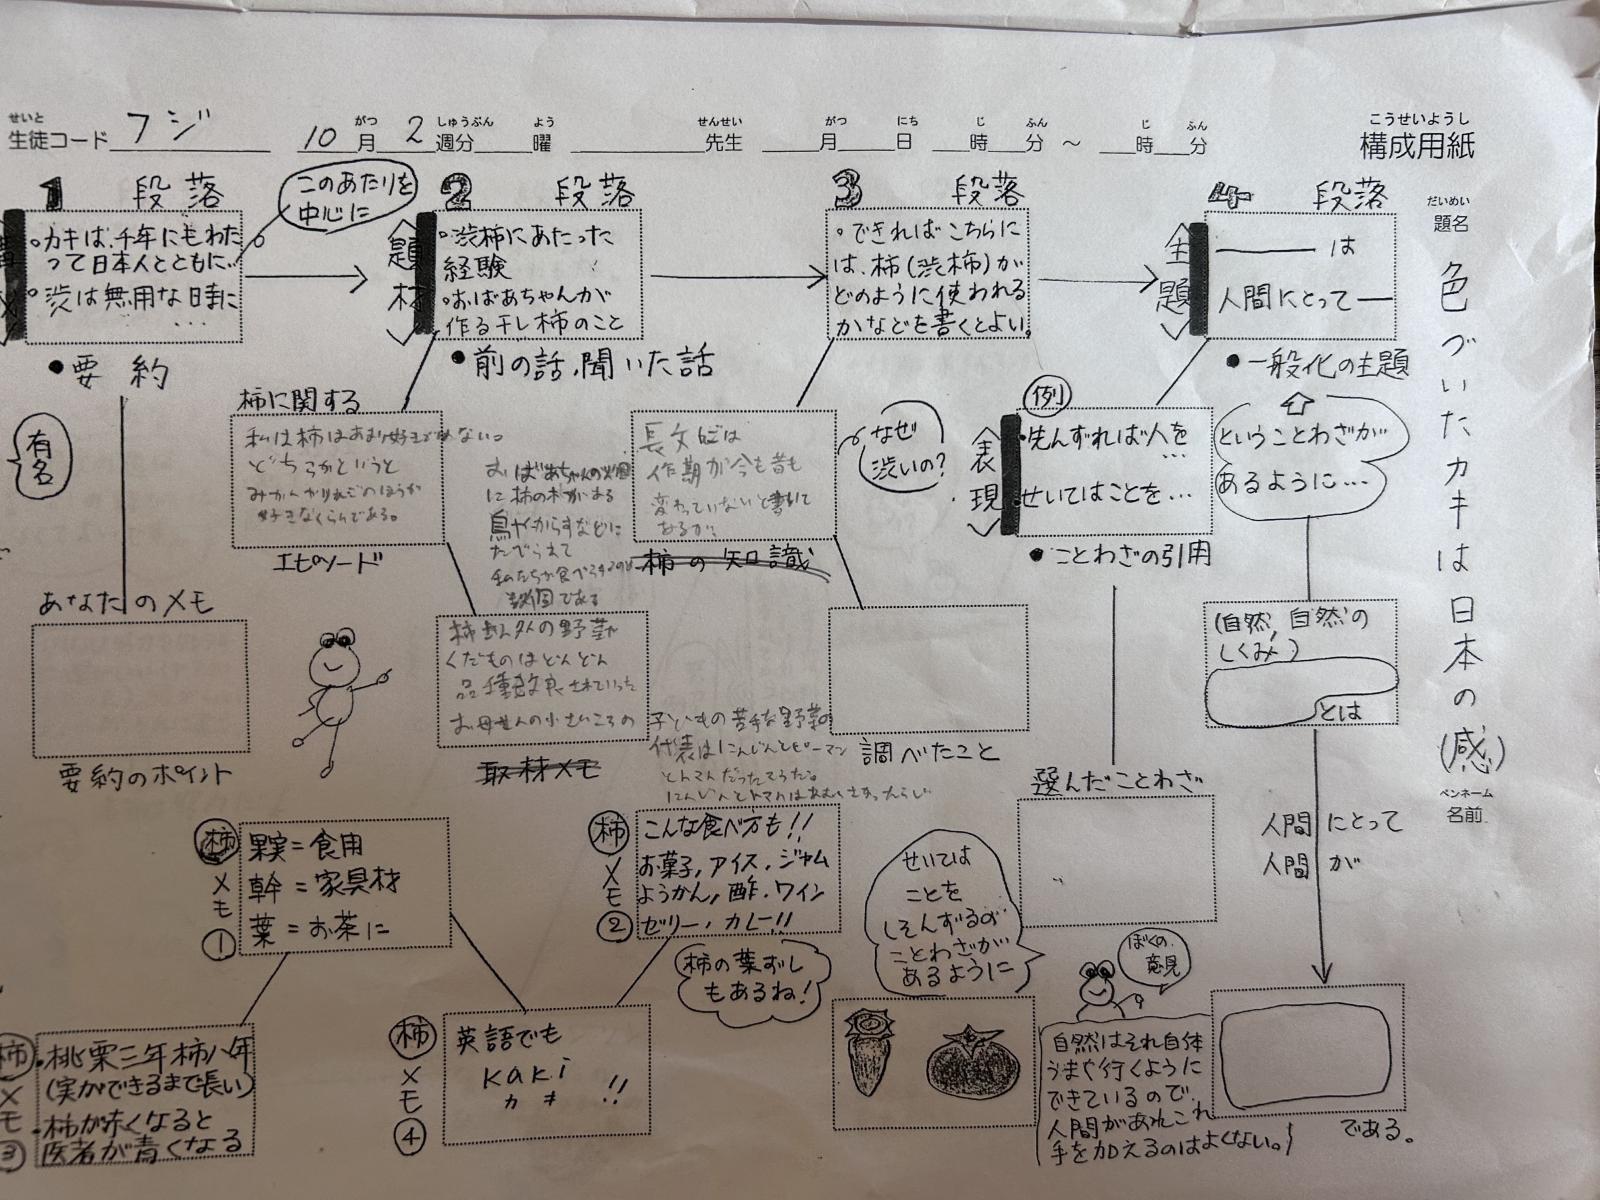 せいと
生徒コード フジ
10月2週分 曜
がつ しゅうぶん よう
せんせい
先生
がつ にち じ ふん じ ふん
月 日 時 分 ～ 時 分
こうせいようし
構成用紙
だいめい
題名
色づいたカキは日本の(感)
ペンネーム
名前
1 段落
このあたりを
中心に
・カキは、千年にもわた
って日本人とともに…
・渋は無用な時に
…
・要約
有名
あなたのメモ
要約のポイント
2 段落
題材
・渋柿にあたった
経験
・おばあちゃんが
作る干し柿のこと
・前の話、聞いた話
柿に関する
私は柿はあまり好きではない。
どちらかというと
みかんやりんごのほうが
好きなくらいである。
エピソード
おばあちゃんの畑
に柿の木がある
鳥やからすなどに
たべられて
柿以外の野菜や
くだものはどんどん
品種改良されていった
お母さんの小さいころの
子どもの苦手な野菜の
代表はにんじんとピーマン
とトマトだったそうだ。
取材メモ
3 段落
・できればこちらに
は、柿(渋柿)が
どのように使われる
かなどを書くとよい。
長文では
作期が今も昔も
変わっていないと書いて
あるが、
なぜ
渋いの?
柿の知識
調べたこと
4 段落
主題
―― は
人間にとって―
・一般化の主題
例
表現
・先んずれば人を
…
せいてはことを…
・ことわざの引用
ということわざが
あるように…
選んだことわざ
(自然、自然の
しくみ)
とは
人間にとって
人間が
である。
柿メモ①
果実=食用
幹=家具材
葉=お茶に
柿メモ②
こんな食べ方も!!
お菓子,アイス,ジャム
ようかん,酢,ワイン
ゼリー,カレー!!
柿の葉ずし
もあるね!
柿メモ③
・桃栗三年柿八年
(実ができるまで長い)
・柿が赤くなると
医者が青くなる
柿メモ④
英語でも
kaki
カキ !!
せいては
ことを
しそんずるの
ことわざが
あるように
ぼくの
意見
自然はそれ自体
うまく行くように
できているので、
人間があれこれ
手を加えるのはよくない。